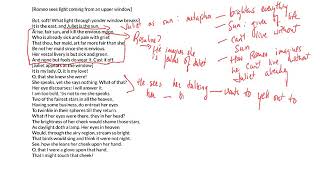 [Romeo sees light coming from an upper window]
But, soft! What light through yonder window breaks?
It is the east, and Juliet is the sun.
Arise, fair sun, and kill the envious moon,
Who is already sick and pale with grief,
That thou, her maid, art far more fair than she:
Be not her maid since she is envious;
Her vestal livery is but sick and green
And none but fools do wear it. Cast it off!
[Juliet appears at the window]
It is my lady, O, it is my love!
O, that she knew she were!
She speaks, yet she says nothing. What of that?
Her eye discourses: I will answer it.
I am too bold, 'tis not to me she speaks.
Two of the fairest stars in all the heaven,
Having some business, do entreat her eyes
To twinkle in their spheres till they return.
What if her eyes were there, they in her head?
The brightness of her cheek would shame those stars,
As daylight doth a lamp. Her eyes in heaven
Would, through the airy region, stream so bright
That birds would sing and think it were not night.
See, how she leans her cheek upon her hand.
O, that I were a glove upon that hand,
That I might touch that cheek!
Juliet as sun: metaphor
brightens everything
Sun: giver of life
can't live without
How Romeo imagines he can't live without
Juliet already
Romeo?
He imagines
he is
He sees her talking
wants to
out to
her